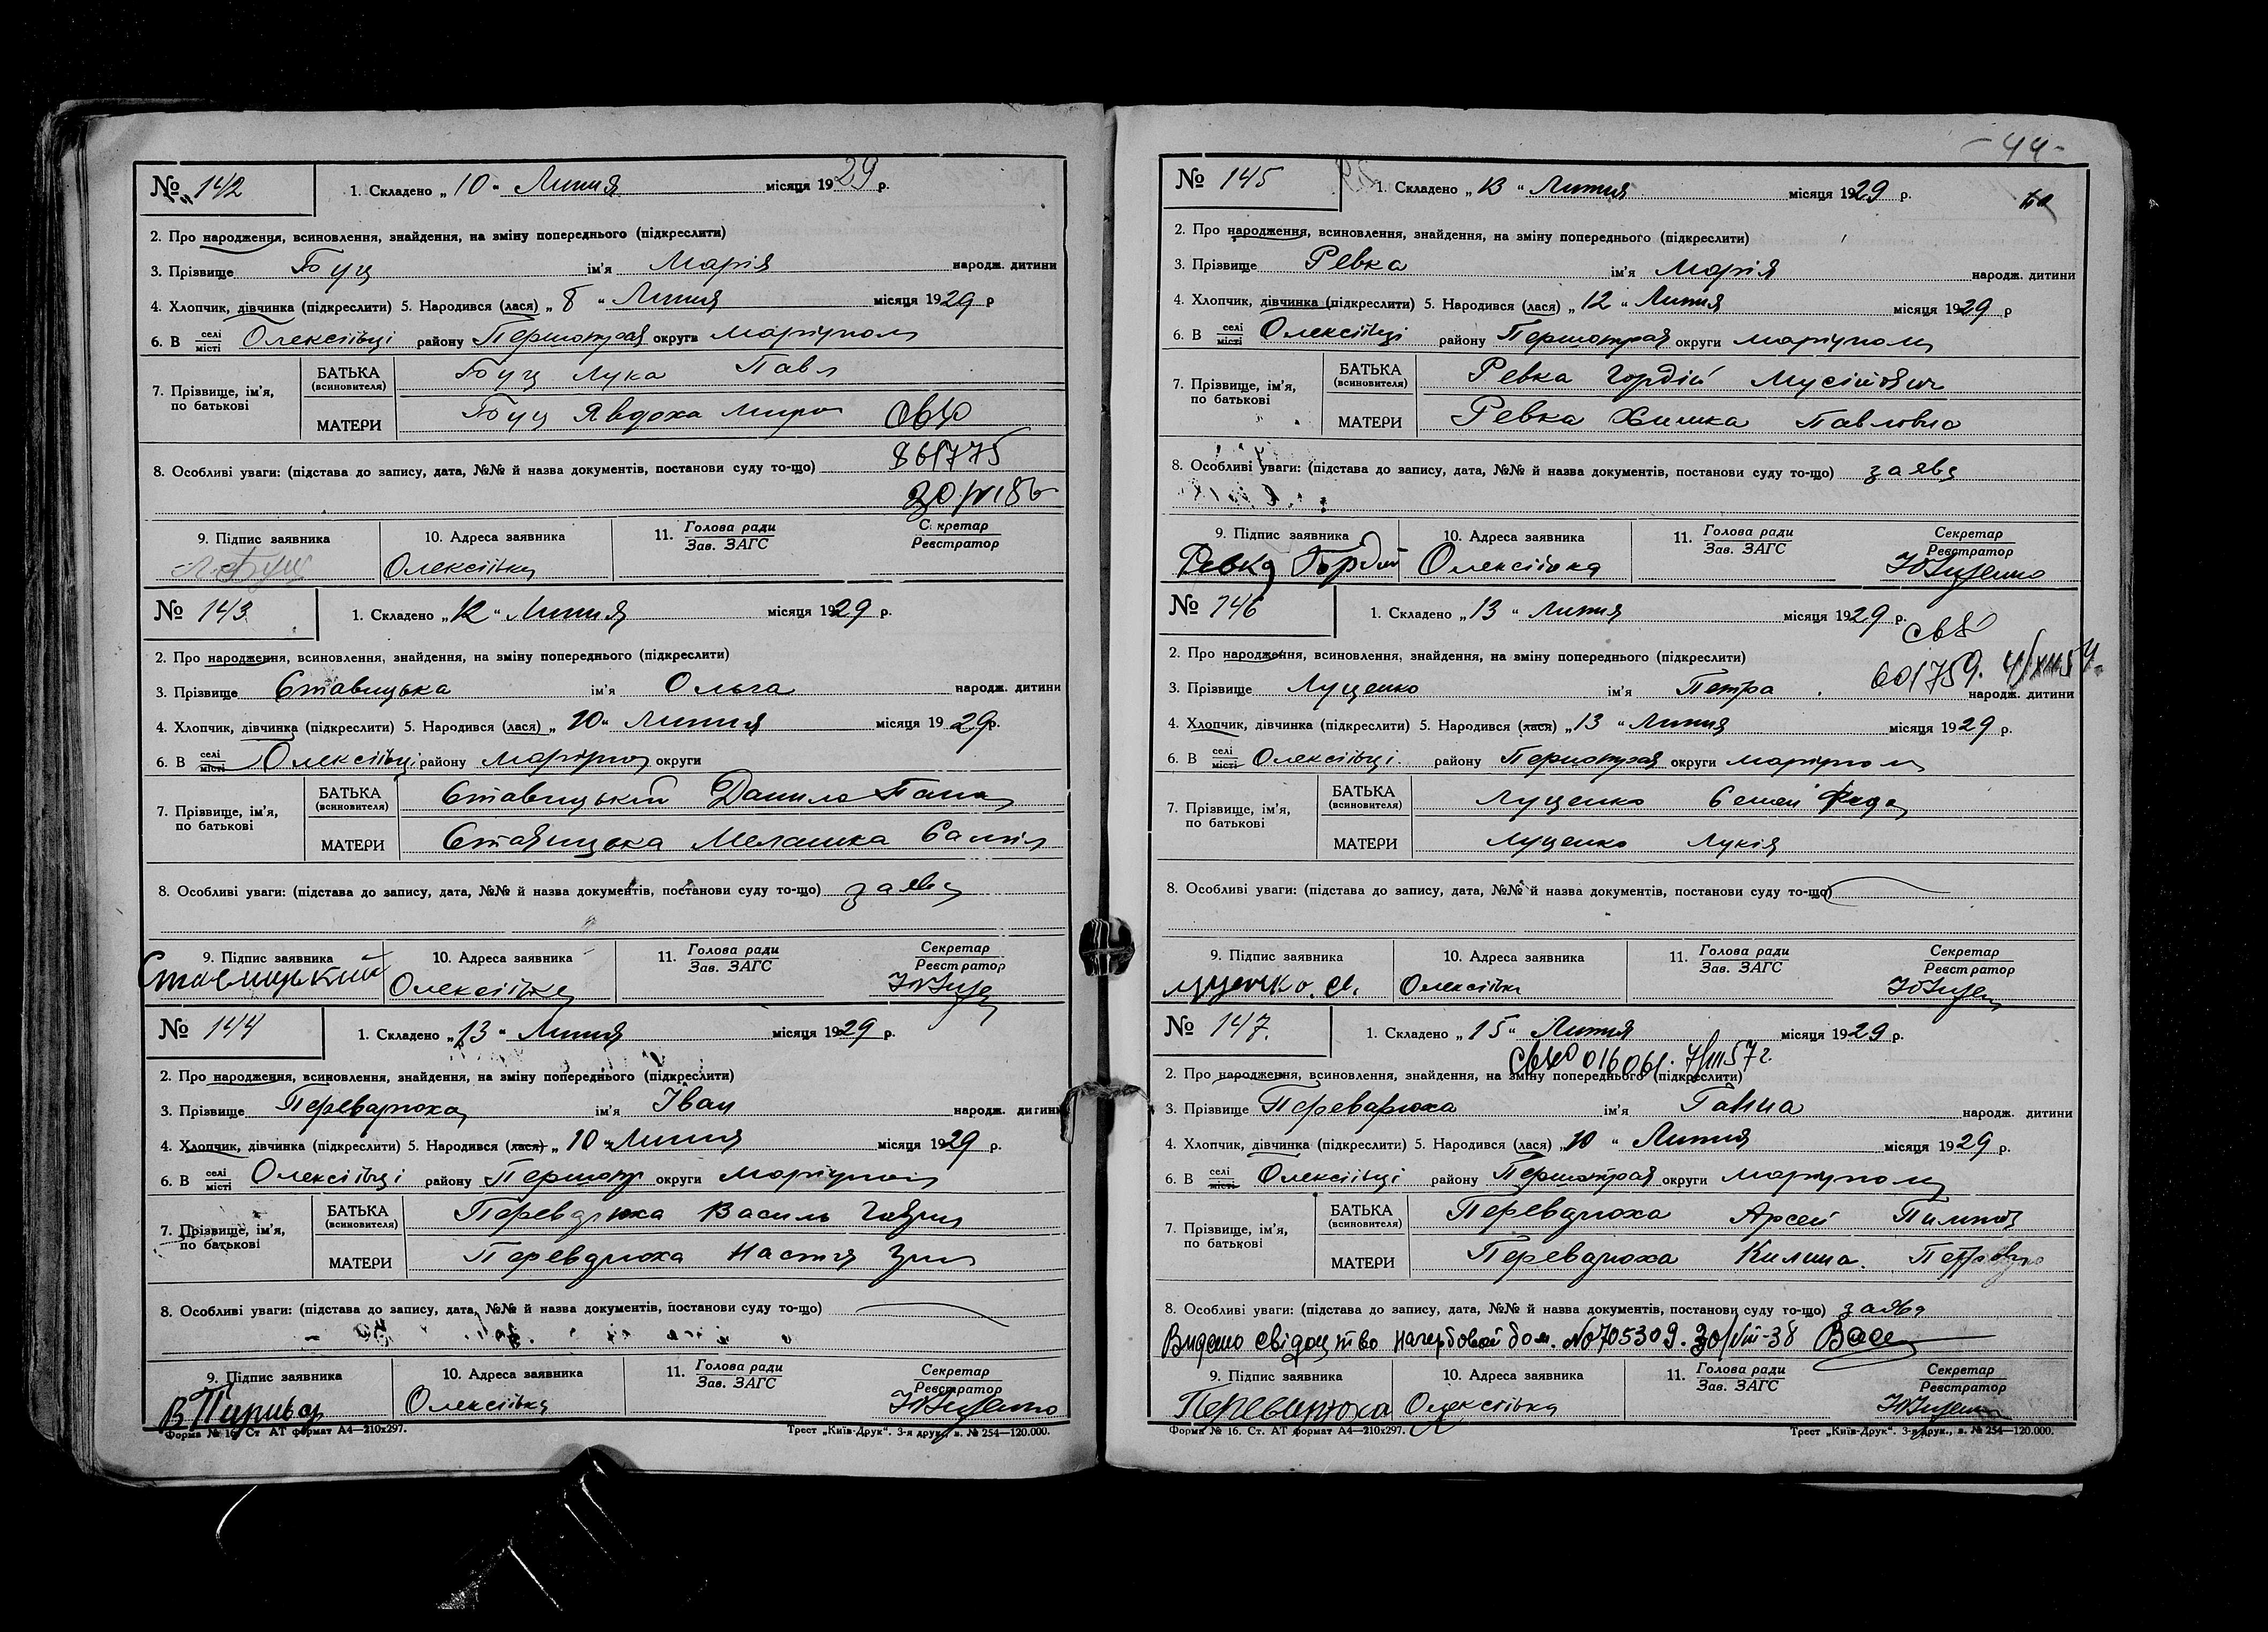 № 142
1. Складено „ 10 “ Липня місяця 1929 р.
2. Про народження, всиновлення, знайдення, на зміну попереднього (підкреслити)
3. Прізвище Буц ім'я Марія народж. дитини
4. Хлопчик, дівчинка (підкреслити) 5. Народився (лася) „ 8 “ Липня місяця 1929 р
6. В селі місті Олексіївці району Першотрав округи Маріупол
7. Прізвище, ім'я, по батькові
БАТЬКА (всиновителя) Буц Лука Павл
МАТЕРИ Буц Явдоха Миро
8. Особливі уваги: (підстава до запису, дата, №№ й назва документів, постанови суду то-що)
9. Підпис заявника Л. Буц
10. Адреса заявника Олексіївка
11. Голова ради Зав. ЗАГС
Секретар Реєстратор
№ 143
1. Складено „ 12 “ Липня місяця 1929 р.
2. Про народження, всиновлення, знайдення, на зміну попереднього (підкреслити)
3. Прізвище Ставицька ім'я Ольга народж. дитини
4. Хлопчик, дівчинка (підкреслити) 5. Народився (лася) „ 10 “ Липня місяця 1929 р.
6. В селі місті Олексіївці району Маріупол округи
7. Прізвище, ім'я, по батькові
БАТЬКА (всиновителя) Ставицький Данило
МАТЕРИ Ставицька Мелашка
8. Особливі уваги: (підстава до запису, дата, №№ й назва документів, постанови суду то-що) заява
9. Підпис заявника Ставицький
10. Адреса заявника Олексіївка
11. Голова ради Зав. ЗАГС
Секретар Реєстратор
№ 144
1. Складено „ 13 “ Липня місяця 1929 р.
2. Про народження, всиновлення, знайдення, на зміну попереднього (підкреслити)
3. Прізвище Переварюха ім'я Іван народж. дитини
4. Хлопчик, дівчинка (підкреслити) 5. Народився (лася) „ 10 “ Липня місяця 1929 р.
6. В селі місті Олексіївці району Першотр округи Маріупол
7. Прізвище, ім'я, по батькові
БАТЬКА (всиновителя) Переварюха Василь Гаврил
МАТЕРИ Переварюха Настя
8. Особливі уваги: (підстава до запису, дата, №№ й назва документів, постанови суду то-що)
9. Підпис заявника
10. Адреса заявника Олексіївка
11. Голова ради Зав. ЗАГС
Секретар Реєстратор
Форма № 16. Ст. АТ формат А4—210х297. Трест „Київ-Друк“. 3-я друк., в. № 254—120.000.
-44-
№ 145
1. Складено „ 13 “ Липня місяця 1929 р.
2. Про народження, всиновлення, знайдення, на зміну попереднього (підкреслити)
3. Прізвище Ревка ім'я Марія народж. дитини
4. Хлопчик, дівчинка (підкреслити) 5. Народився (лася) „ 12 “ Липня місяця 1929 р
6. В селі місті Олексіївці району Першотрав округи Маріупол
7. Прізвище, ім'я, по батькові
БАТЬКА (всиновителя) Ревка Гордій Мусійович
МАТЕРИ Ревка Химка Павловна
8. Особливі уваги: (підстава до запису, дата, №№ й назва документів, постанови суду то-що) заява
9. Підпис заявника Ревка Гордій
10. Адреса заявника Олексіївка
11. Голова ради Зав. ЗАГС
Секретар Реєстратор
№ 146
1. Складено „ 13 “ Липня місяця 1929 р.
2. Про народження, всиновлення, знайдення, на зміну попереднього (підкреслити)
601759.
3. Прізвище Луценко ім'я Петра народж. дитини
4. Хлопчик, дівчинка (підкреслити) 5. Народився (лася) „ 13 “ Липня місяця 1929 р.
6. В селі місті Олексіївці району Першотрав округи Маріупол
7. Прізвище, ім'я, по батькові
БАТЬКА (всиновителя) Луценко Семен
МАТЕРИ Луценко Лукія
8. Особливі уваги: (підстава до запису, дата, №№ й назва документів, постанови суду то-що)
9. Підпис заявника Луценко. С.
10. Адреса заявника Олексіївка
11. Голова ради Зав. ЗАГС
Секретар Реєстратор
№ 147.
1. Складено „ 15 “ Липня місяця 1929 р.
016061. 7/III 57 г.
2. Про народження, всиновлення, знайдення, на зміну попереднього (підкреслити)
3. Прізвище Переварюха ім'я Ганна народж. дитини
4. Хлопчик, дівчинка (підкреслити) 5. Народився (лася) „ 10 “ Липня місяця 1929 р.
6. В селі місті Олексіївці району Першотрав округи Маріупол
7. Прізвище, ім'я, по батькові
БАТЬКА (всиновителя) Переварюха Арсей
МАТЕРИ Переварюха Килина Петровна
8. Особливі уваги: (підстава до запису, дата, №№ й назва документів, постанови суду то-що) заява
Видано свідоцтво на гербовой бом. №705309. 30/VIII-38
9. Підпис заявника Переварюха
10. Адреса заявника Олексіївка
11. Голова ради Зав. ЗАГС
Секретар Реєстратор
Форма № 16. Ст. АТ формат А4—210х297. Трест „Київ-Друк“. 3-я друк., в. № 254—120.000.